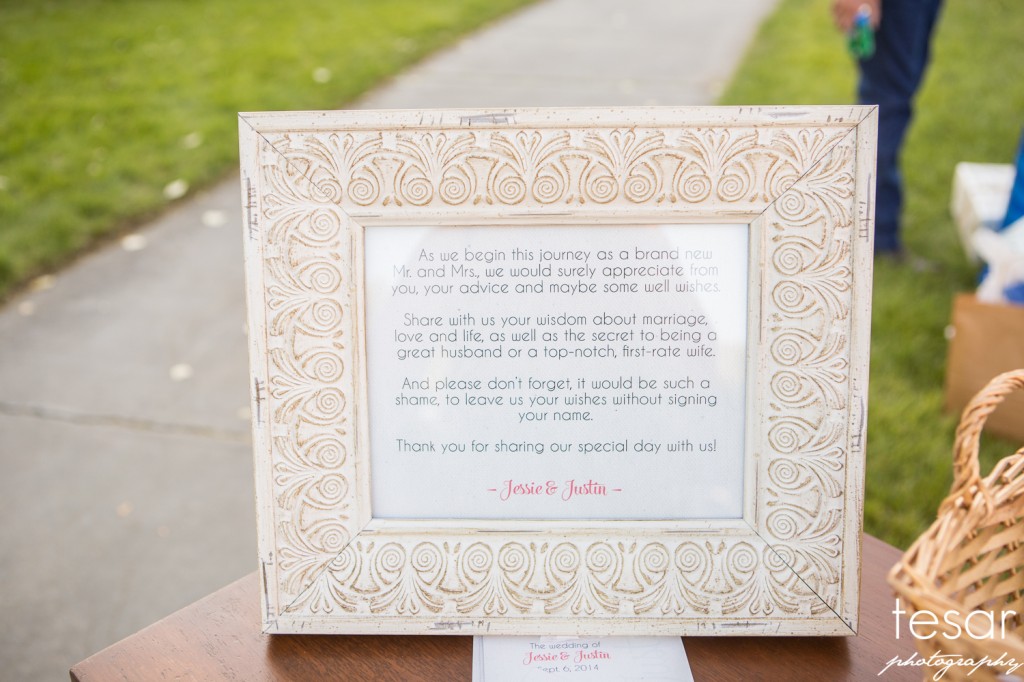 As we begin this journey as a brand new
Mr. and Mrs., we would surely appreciate from
you, your advice and maybe some well wishes.
Share with us your wisdom about marriage,
love and life, as well as the secret to being a
great husband or a top-notch, first-rate wife.
And please don't forget, it would be such a
shame, to leave us your wishes without signing
your name.
Thank you for sharing our special day with us!
- Jessie & Justin -
The wedding of
Jessie & Justin
Sept. 6, 2014
tesar
photography